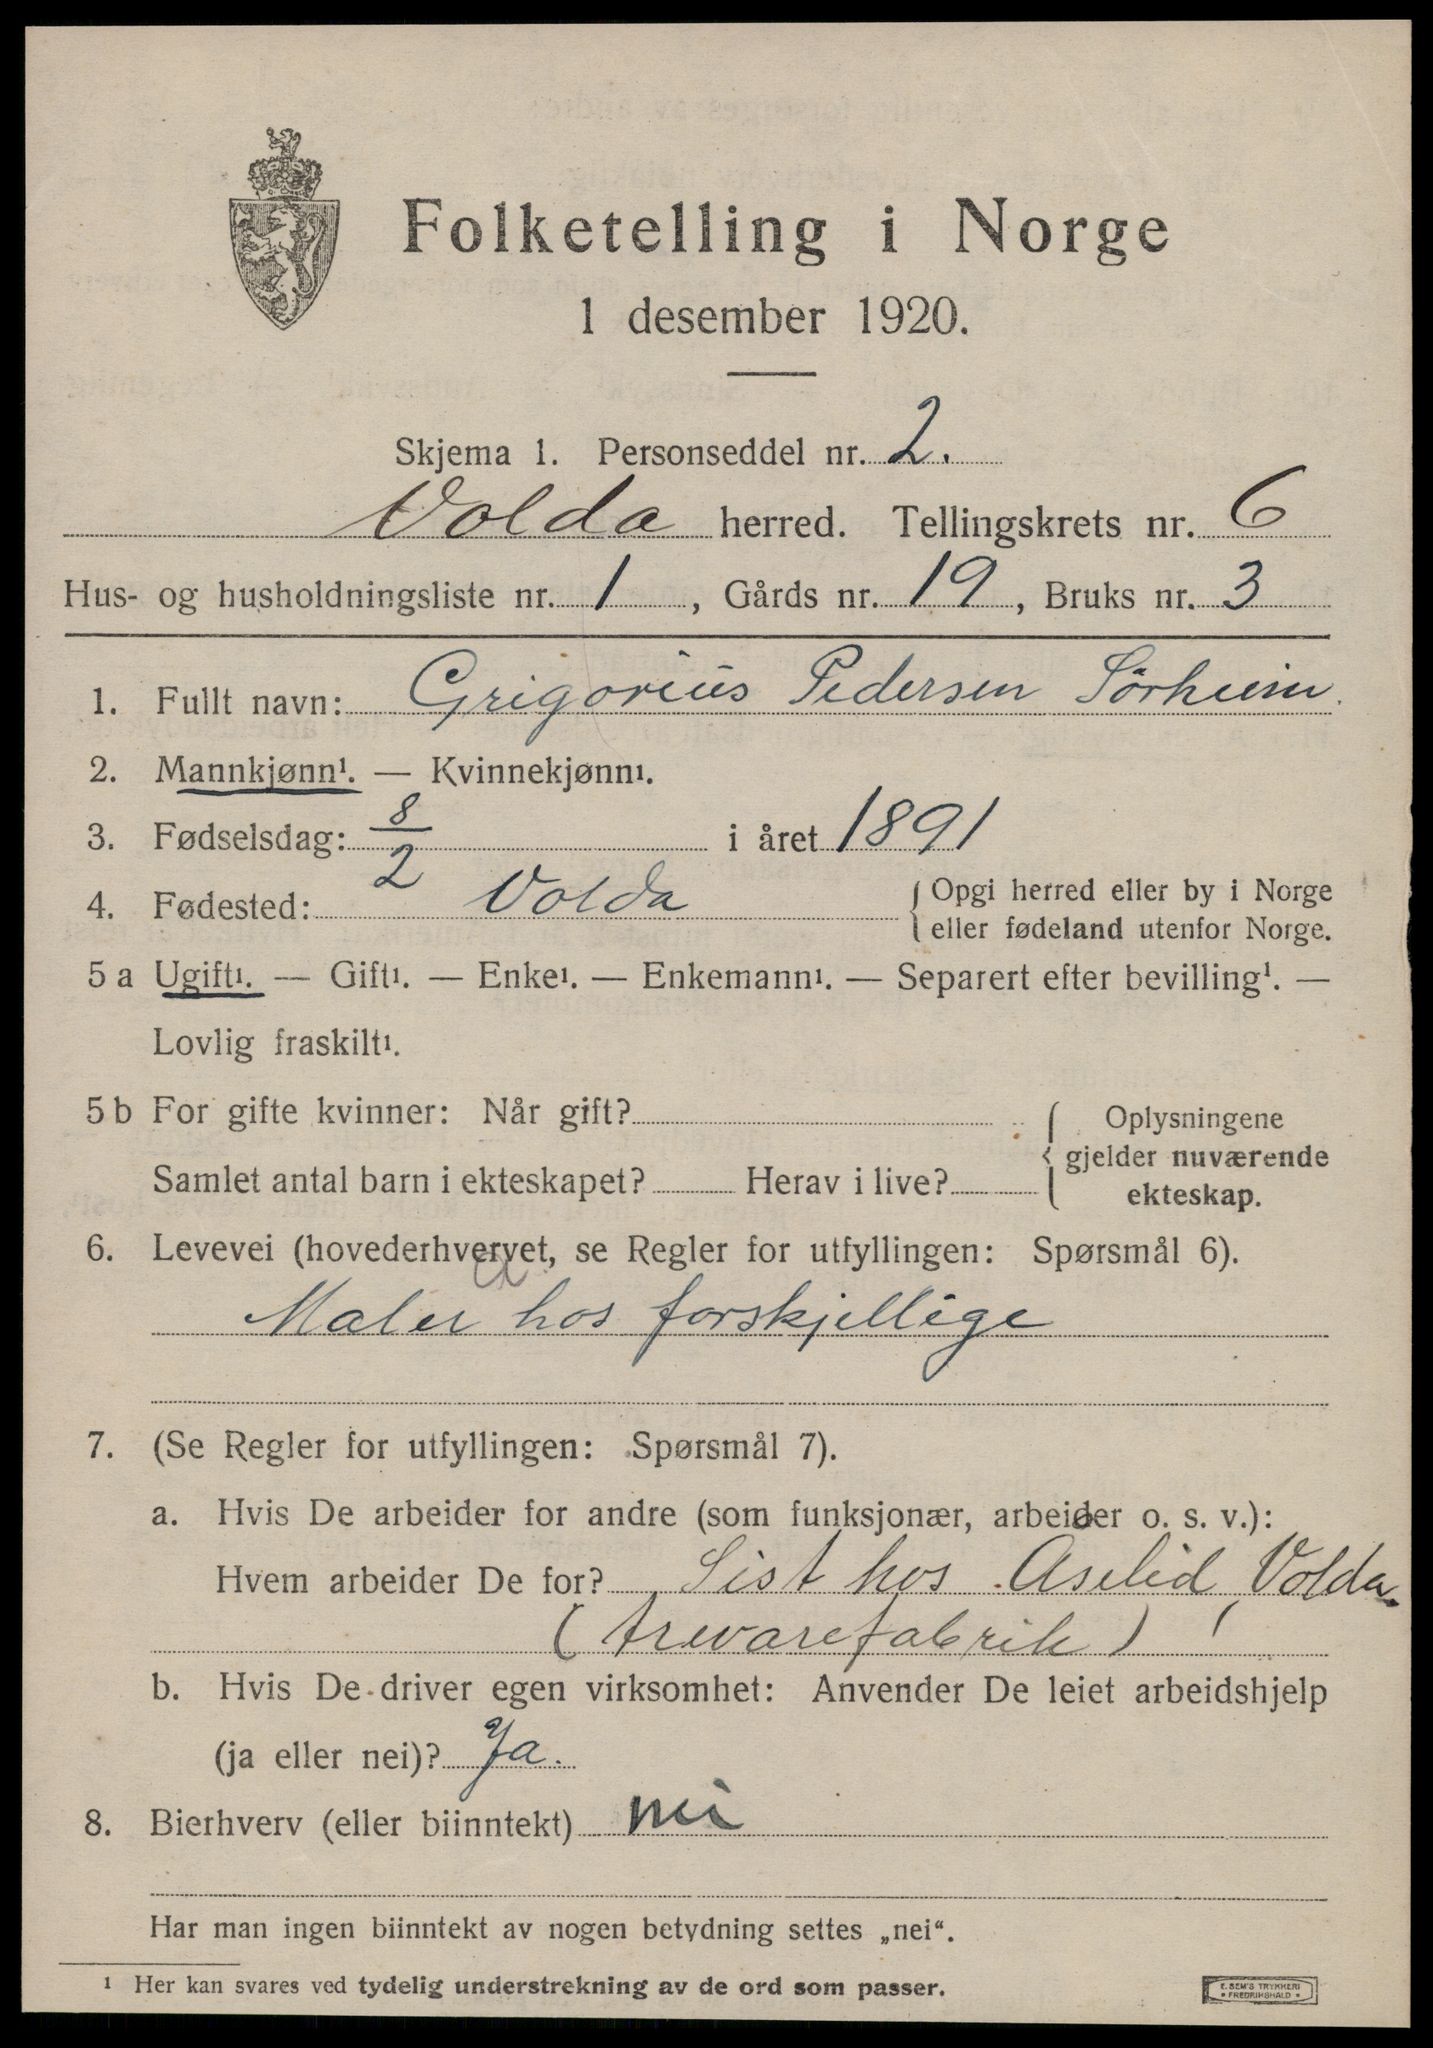 Folketelling i Norge
1 desember 1920.
Skjema 1. Personseddel nr. 2.
Volda herred. Tellingskrets nr. 6
Hus- og husholdningsliste nr. 1, Gårds nr. 19, Bruks nr. 3
1. Fullt navn: Grigorius Pedersen Sörheim.
2. Mannkjønn¹. — Kvinnekjønn¹.
3. Fødselsdag: 8/2 i året 1891
4. Fødested: Volda { Opgi herred eller by i Norge
eller fødeland utenfor Norge.
5 a Ugift¹. — Gift¹. — Enke¹. — Enkemann¹. — Separert efter bevilling¹. —
Lovlig fraskilt¹.
5 b For gifte kvinner: Når gift? { Oplysningene
gjelder nuværende
ekteskap.
Samlet antal barn i ekteskapet? Herav i live?
6. Levevei (hovederhvervet, se Regler for utfyllingen: Spørsmål 6).
Maler hos forskjellige
7. (Se Regler for utfyllingen: Spørsmål 7).
a. Hvis De arbeider for andre (som funksjonær, arbeider o. s. v.):
Hvem arbeider De for? Sist hos Aselid, Volda.
(trevarefabrik)
b. Hvis De driver egen virksomhet: Anvender De leiet arbeidshjelp
(ja eller nei)? Ja.
8. Bierhverv (eller biinntekt) nei
Har man ingen biinntekt av nogen betydning settes „nei“.
¹ Her kan svares ved tydelig understrekning av de ord som passer.
E. SEM'S TRYKKERI
• FREDRIKSHALD •